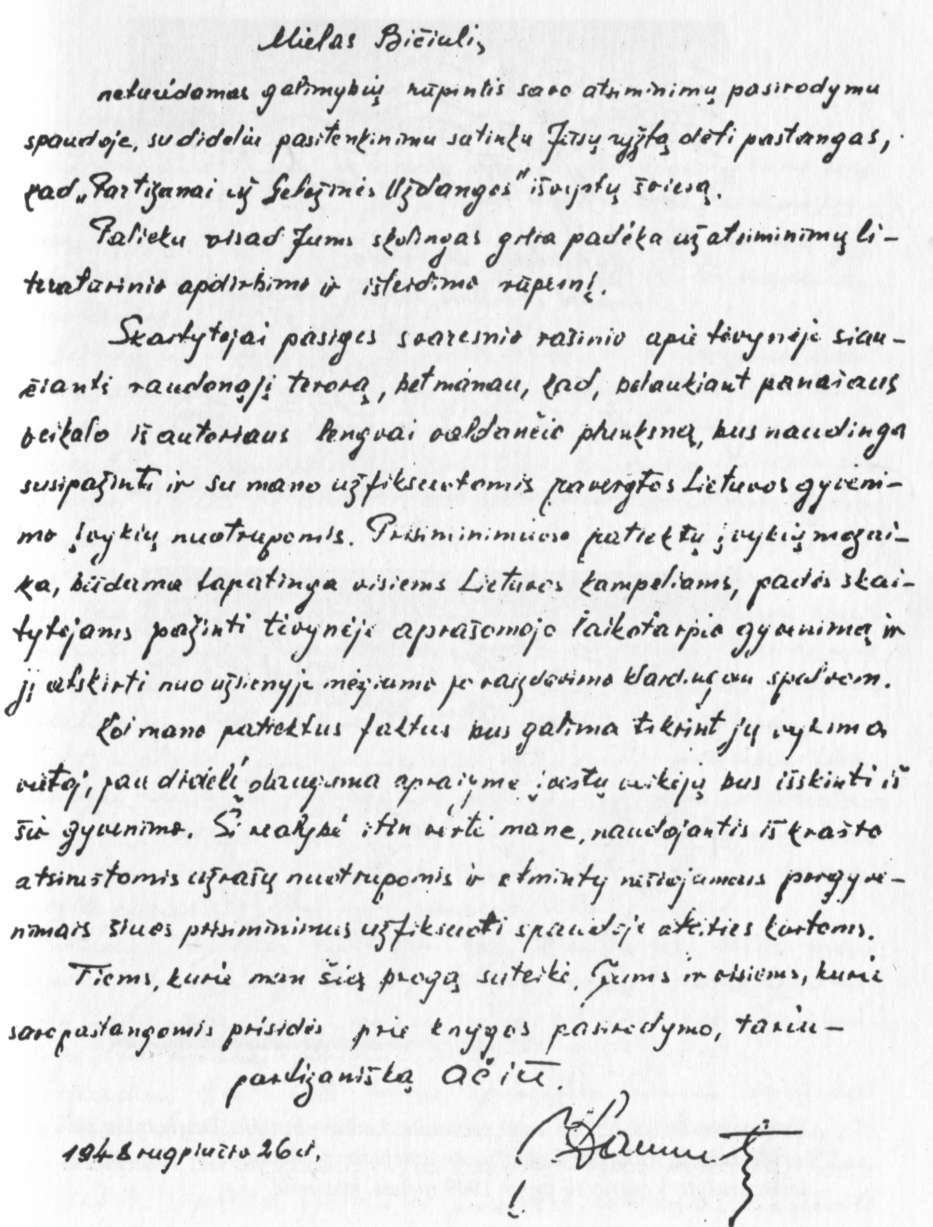 Mielas Bičiuli,
neturėdamas galimybių rūpintis savo atsiminimų pasirodymu
spaudoje, su dideliu pasitenkinimu sutinku Jūsų ryžtą dėti pastangas,
kad „Partizanai už Geležinės Uždangos" išvystų šviesą.
Palieku visad Jums skolingas gilia padėka už atsiminimų li-
teratūrinio apdirbimo ir išleidimo rūpesnį.
Skaitytojai pasiges svaresnio rašinio apie tėvynėje siau-
čiantį raudonąjį terorą, bet manau, kad, belaukiant panašaus
veikalo iš autoriaus lengvai valdančio plunksną, bus naudinga
susipažinti ir su mano užfiksuotomis pavergtos Lietuvos gyveni-
mo įvykių nuotrupomis. Prisiminimuose patiektų įvykių mozai-
ka, būdama tapatinga visiems Lietuvos kampeliams, padės skai-
tytojams pažinti tėvynėje aprašomojo laikotarpio gyvenimą ir
jį atskirti nuo užsienyje mėgiamo jo vaizdavimo
Kol mano patiektus faktus bus galima tikrint jų vyksmo
vietoj, jau didelė dauguma aprašyme veikėjų bus išskinti iš
šio gyvenimo. Ši realybė itin vertė mane, naudojantis iš krašto
atsineštomis užrašų nuotrupomis ir atminty nešiojamais pergyve-
nimais šiuos prisiminimus užfiksuoti spaudoje ateities kartoms.
Tiems, kurie man šią progą suteikė, Jums ir visiems, kurie
savo pastangomis prisidės prie knygos pasirodymo, tariu –
partizanišką ačiū.
1948 rugpiučio 26 d.